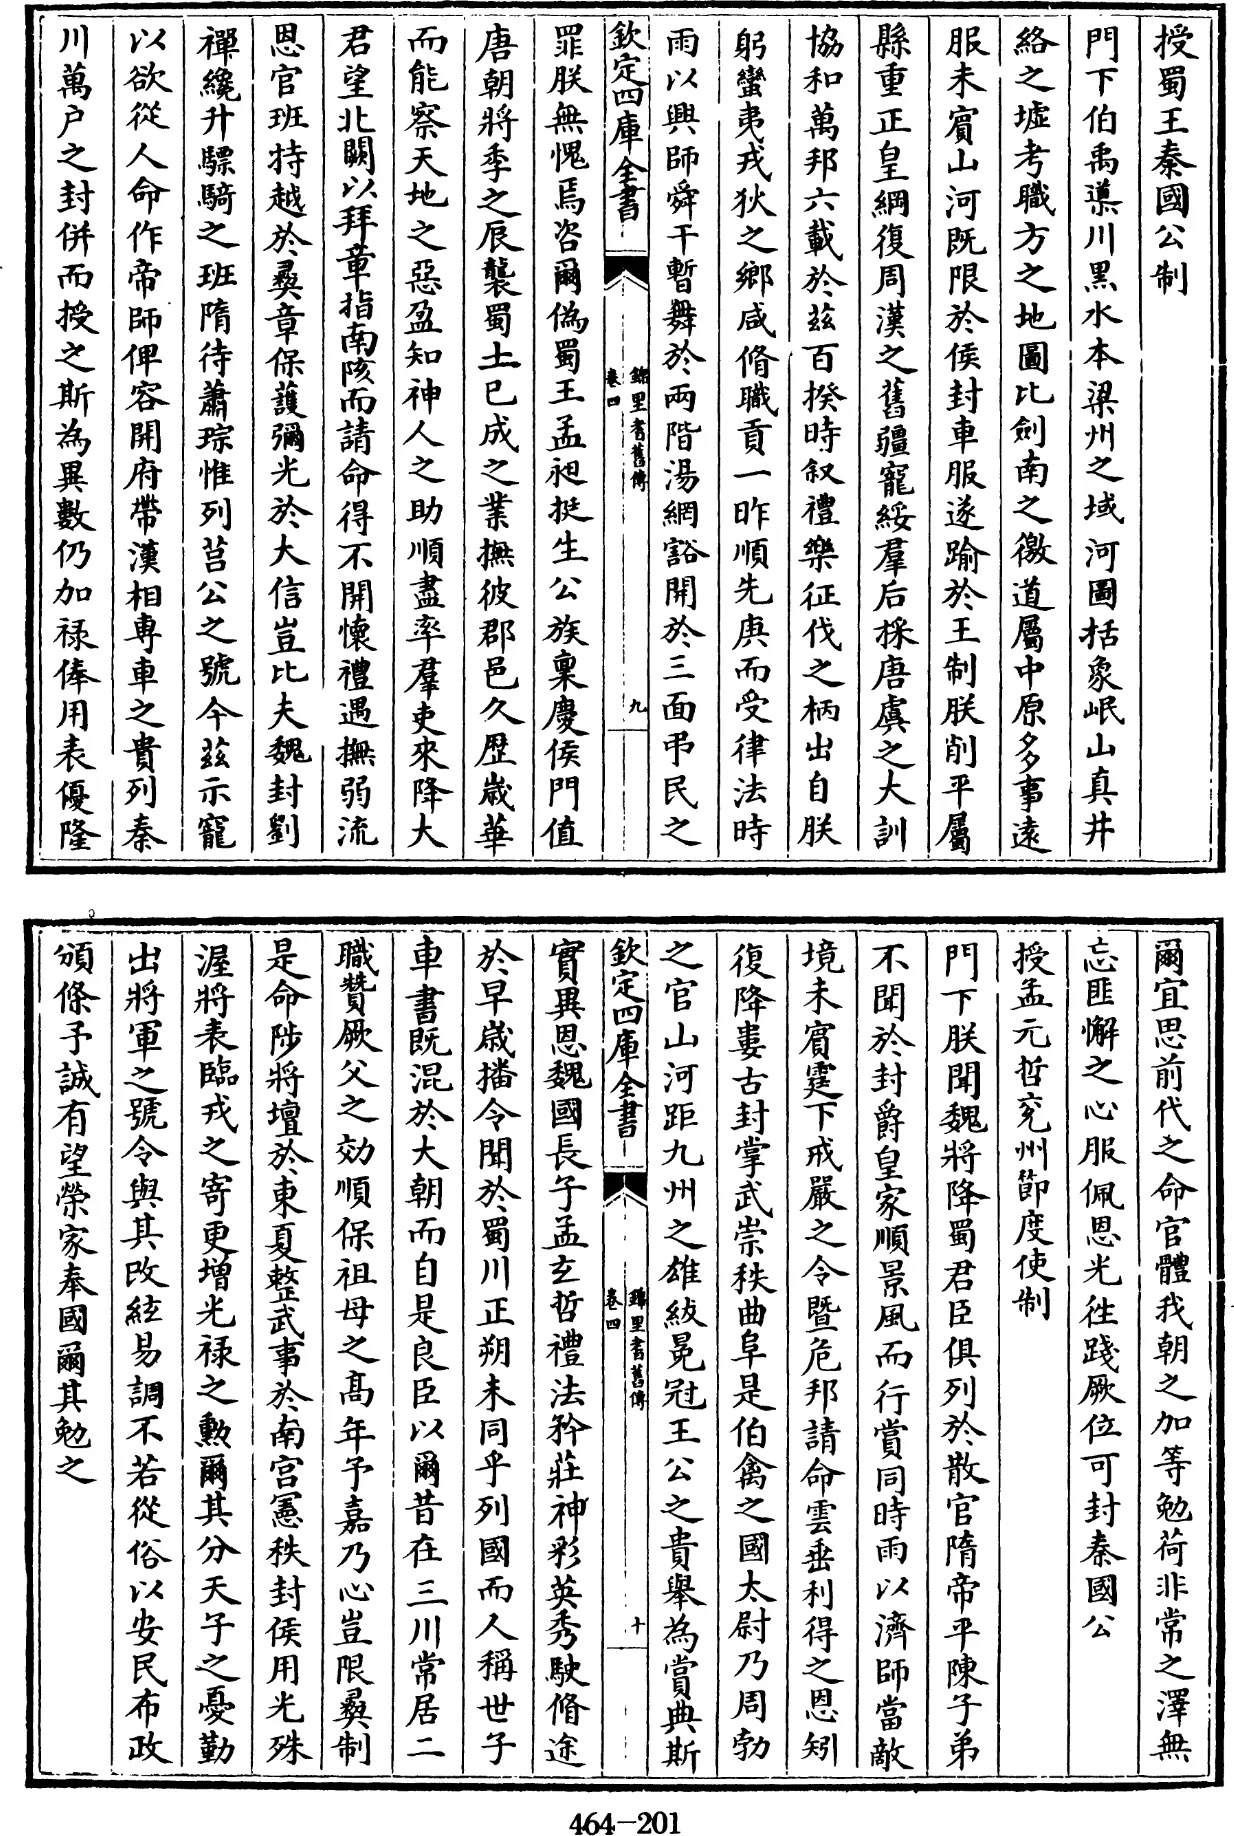 授蜀王秦國公制
門下伯禹導川黑水本梁州之域河圖括象岷山真井
絡之墟考職方之地圖比劍南之徼道屬中原多事遠
服未賓山河既限於侯封車服遂踰於王制朕削平屬
縣重正皇綱復周漢之舊疆寵綏羣后採唐虞之大訓
協和萬邦六載於兹百揆時叙禮樂征伐之柄出自朕
躬蠻夷戎狄之鄉咸脩職貢一昨順先庚而受律法時
雨以興師舜干暫舞於兩階湯網豁開於三面弔民之
欽定四庫全書
錦里耆舊傳
卷四
九
罪朕無愧焉咨爾偽蜀王孟昶挺生公族稟慶侯門值
唐朝將季之辰襲蜀土已成之業撫彼郡邑久歷歲華
而能察天地之惡盈知神人之助順盡率羣吏來降大
君望北闕以拜章指南陔而請命得不開懷禮遇撫弱流
恩官班特越於彛章保護彌光於大信豈比夫魏封劉
禪纔升驃騎之班隋待蕭琮惟列莒公之號今兹示寵
以欲從人命作帝師俾容開府帶漢相専車之貴列秦
川萬户之封併而授之斯為異數仍加禄俸用表優隆
爾宜思前代之命官體我朝之加等勉荷非常之澤無
忘匪懈之心服佩恩光往踐厥位可封秦國公
授孟元哲兖州節度使制
門下朕聞魏將降蜀君臣俱列於散官隋帝平陳子弟
不聞於封爵皇家順景風而行賞同時雨以濟師當敵
境未賓霆下戒嚴之令暨危邦請命雲垂利得之恩矧
復降婁古封掌武崇秩曲阜是伯禽之國太尉乃周勃
之官山河距九州之雄紱冕冠王公之貴舉為賞典斯
欽定四庫全書
錦里耆舊傳
卷四
十
實異恩魏國長子孟玄哲禮法矜莊神彩英秀駛脩途
於早歲播令聞於蜀川正朔未同乎列國而人稱世子
車書既混於大朝而自是良臣以爾昔在三川常居二
職贊厥父之効順保祖母之髙年予嘉乃心豈限彛制
是命陟將壇於東夏整武事於南宫憲秩封侯用光殊
渥將表臨戎之寄更増光禄之勲爾其分天子之憂勤
出將軍之號令與其改絃易調不若從俗以安民布政
頒條予誠有望榮家奉國爾其勉之
464-201